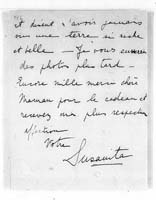 et disent n'avoir jamais
vu une terre si riche
et belle — Je vous enverrai
des photos plus tard —
Encore mille mercis chère
Maman pour le cadeau et
recevez mes plus respectueux
affection
Votre
Susanita